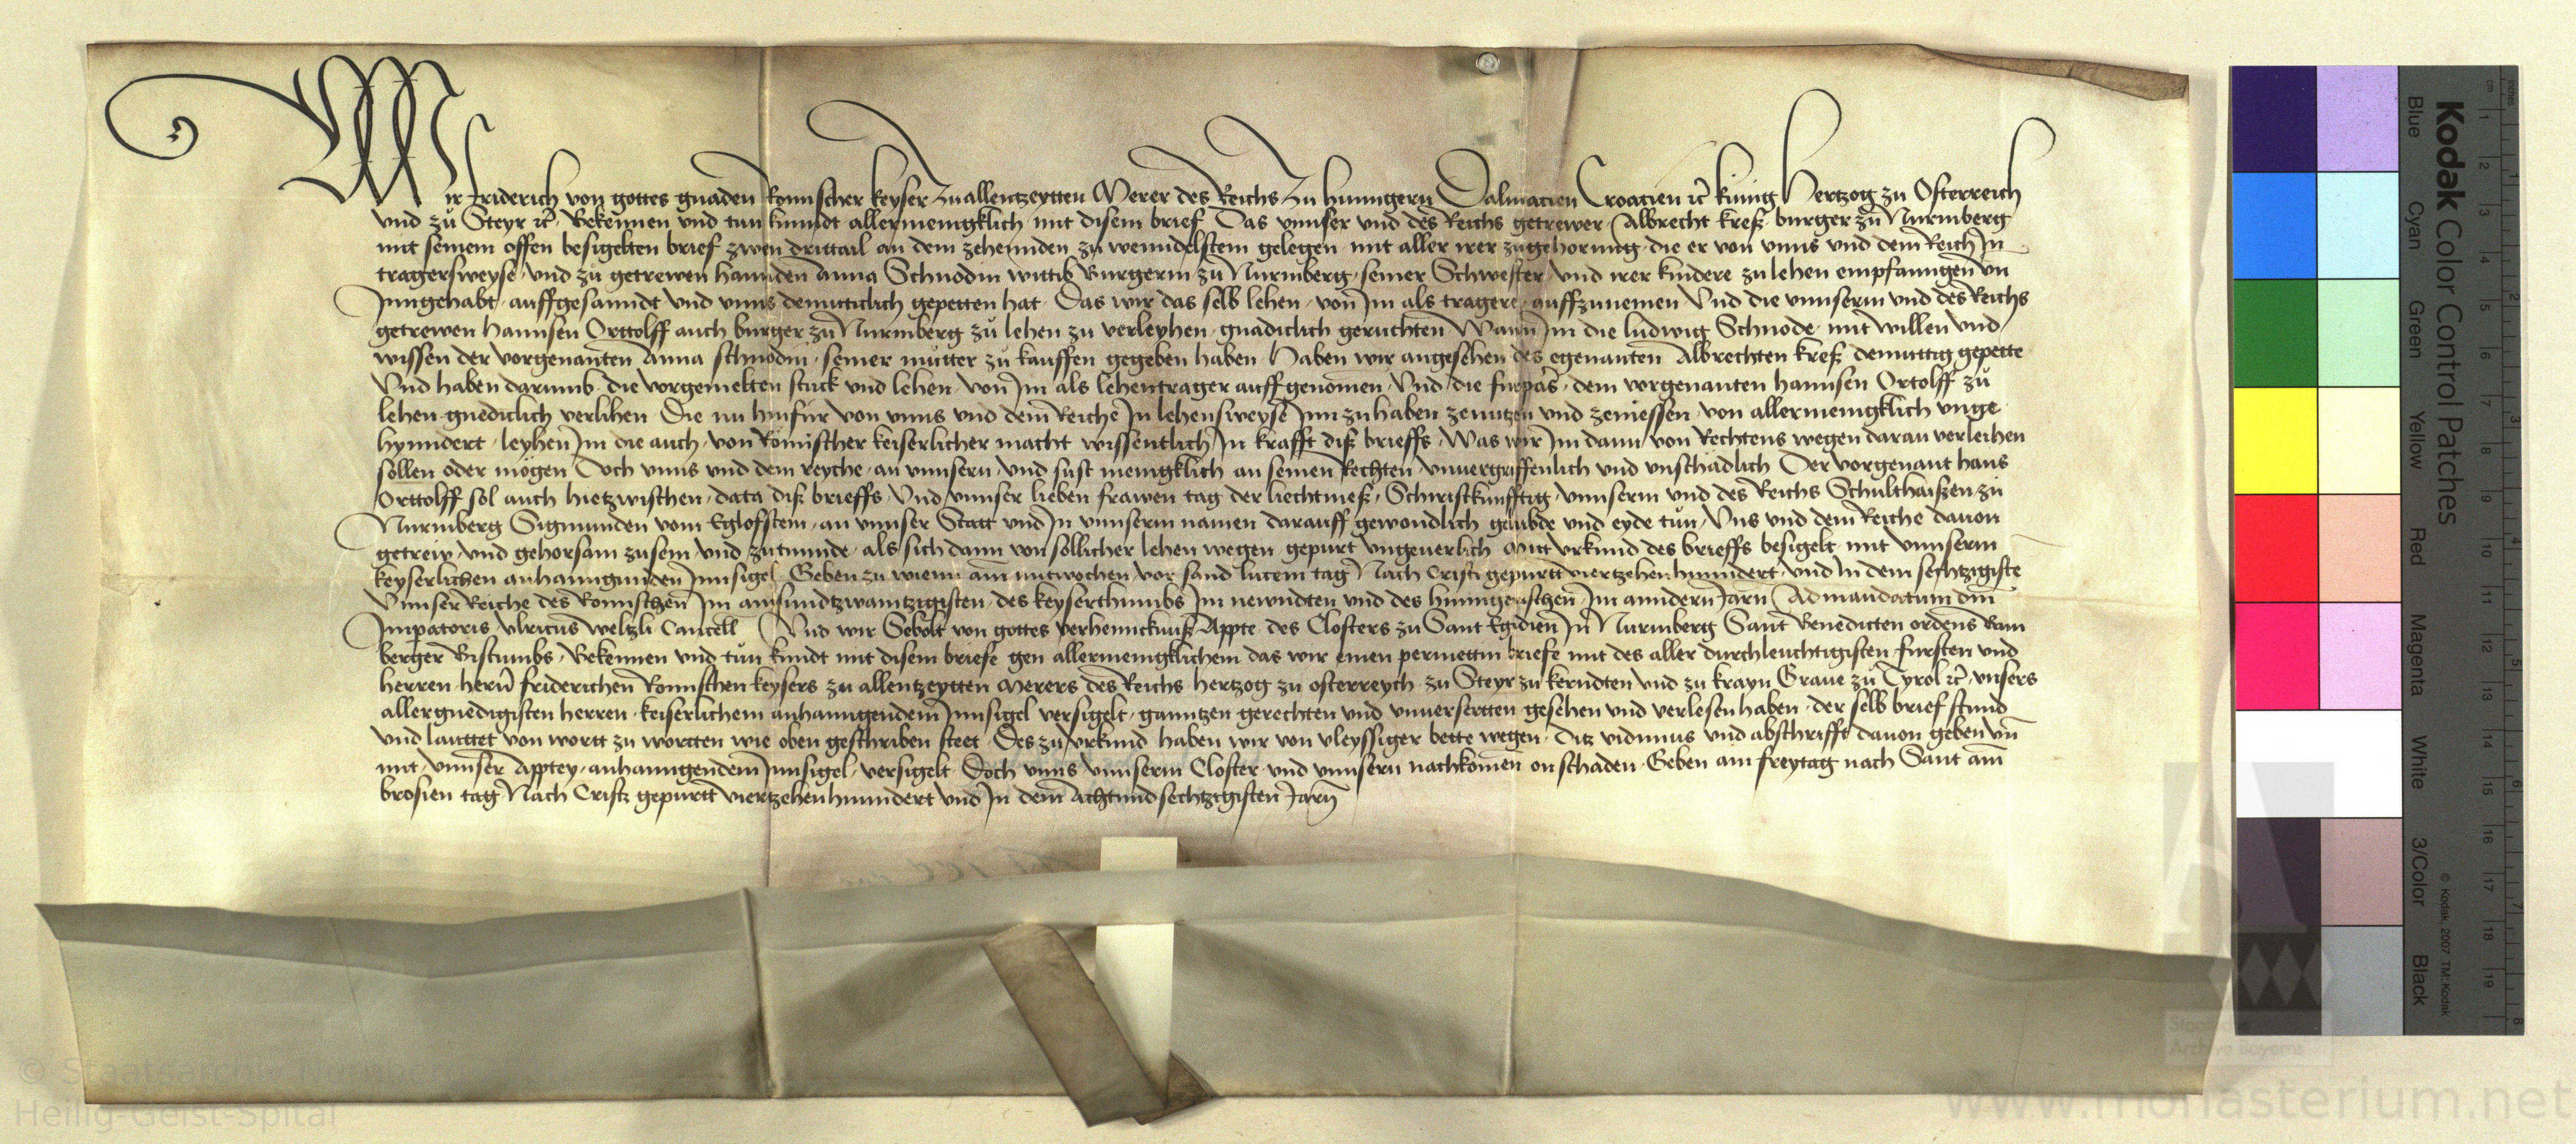 Wir Friderich von gottes gnaden Romischer keyser zu allentzeytten Merer des Reichs zu hunngern Dalmacien Croacien ꝛc̃ kunig Hertzog zu Osterreich
vnd zů Steyr ꝛc̃ Bekennen vnd tun kunndt allermenigklich mit disem brief Das vnnser vnd des Reichs getrewer Albrecht kreß burger zů Nuremberg
mit seinem offen besigelten brief zwen drittail an dem zehennden zu wenndelstein gelegen mit aller irer zugehorung die er von vnns vnd dem Reich In
tragersweyse vnd zů getrewen hannden Anna Schnodin wittib Burgerin zů Nuremberg seiner Schwester vnd irer kindere zu lehen empfanngen vn̄
Inngehabt auffgesanndt vnd vnns demuticlich gepetten hat Das wir das selb lehen von Im als tragere auffzunemen Vnd die vnnserm vnd des Reichs
getrewen hannsen Orttolff auch burger zů Nuremberg zů lehen zu verleyhen gnadiclich geruchten Wann Im die ludwig Schnode mit willen vnd
wissen der vorgenanten Anna schnodin seiner můtter zů kauffen gegeben haben Haben wir angesehen des egenanten Albrechten kreß demuttig gepette
Vnd haben darumb die vorgemelten stuck vnd lehen von Im als lehentrager auffgenomen Vnd die furpas dem vorgenanten hannsen Ortolff zů
lehen gnediclich verlihen Die nu hinfur von vnns vnd dem Reiche In lehensweyse Inn zu haben zenutzen vnd zeniessen von allermenigklich vnge
hynndert leyhen Im die auch von Romischer keiserlicher macht wissentlich In krafft diß brieffs Was wir Im dann von Rechtens wegen daran verleihen
sollen oder mogen Doch vnns vnd dem reyche an vnnsern vnd sust menigklich an seinen Rechten vnuergriffenlich vnd vnschadlich Der vorgenant hans
Orttolff sol auch hietzwischen data diß brieffs Vnd vnnser lieben frawen tag der liechtmeß Schirstkunfftig vnnserm vnd des Reichs Schulthaißen zu
Nuremberg Sigmunden vom Eglofstein an vnnser Statt vnd In vnnserm namen darauff gewondlich gelubde vnd eyde tůn Vns vnd dem Reiche dauon
getrew vnd gehorsam zusein vnd zutunnde als sich dann von sollicher lehen wegen gepurt vngeuerlich Mit vrkund des brieffs besigelt mit vnnserm
keyserlichen anhanngunden Innsigel Geben zu wienn am mitwochen vor sand lucein tag Nach Cristi gepurtt viertzehenhunndert vnd In dem sechtzigiste
Vnnser Reiche des Romischen Im ainsundtzwaintzigisten des keyserthumbs Im newndten vnd des hunngerischen Im anndern Jarn Ad mandatum dm̄
Imꝑatoris vlricus weltzli Cancell Vnd wir Sebolt von gottes verhenncknuß Appte des Closters zu Sant Egidien In Nuremberg Sant Benedicten ordens Bam
berger Bistumbs Bekennen vnd tůn kundt mit disem briefe gen allermenigklichem das wir einen permettin briefe mit des aller durchleuchtigisten fursten vnd
herren hern̄ friderichen Romischen keysers zu allentzeytten Merers des Reichs hertzog zu osterreych zu Steyr zu kerndten vnd zu krayn Graue zů Tyrol ꝛc̃ vnsers
allergnedigisten herren keiserlichem anhanngendem Innsigel versigelt ganntzen gerechten vnd vnuersertten gesehen vnd verlesen haben der selb brief stund
vnd lauttet von wortt zu wortten wie oben geschriben steet Des zu vrkund haben wir von vleyssiger bette wegen ditz vidimus vnd abschrifft dauon geben vn̄
mit vnnser Apptey anhanngendem Innsigel versigelt Doch vnns vnnserm Closter vnd vnnsern nachkomen on schaden Geben am freytag nach Sant am
brosien tag Nach Cristi gepurtt viertzehenhunndert vnd In dem achtundsechtzigisten Jarn
Kodak Color Control Patches
Blue Cyan Green Yellow Red Magenta White 3/Color Black
© Kodak, 2007 TM: Kodak
© Staatsarchiv Nürnberg
Heilig-Geist-Spital
www.monasterium.net